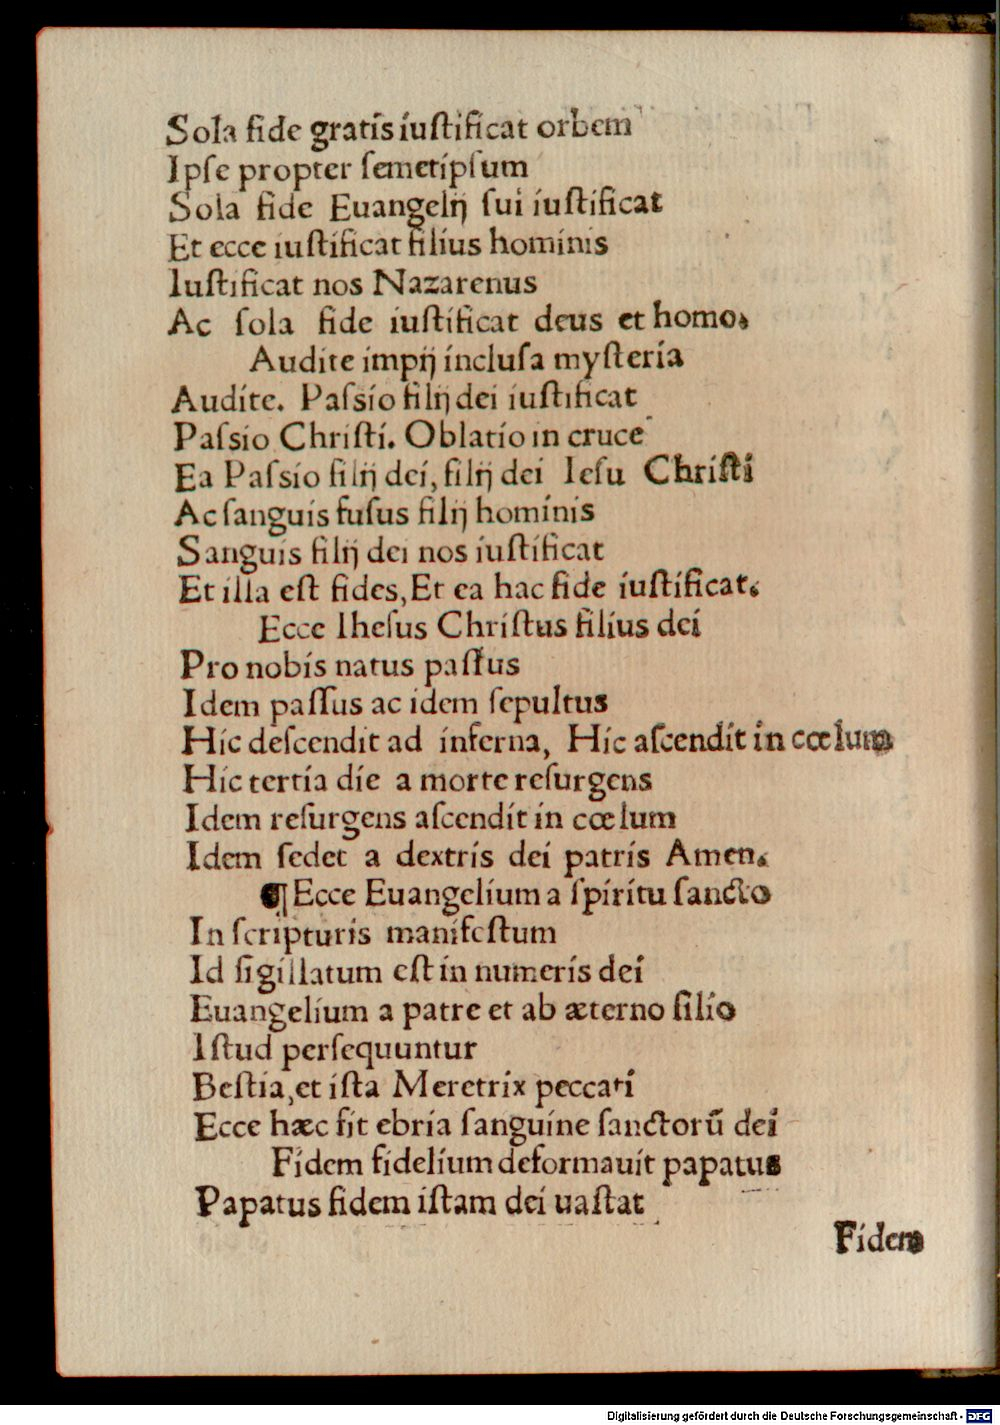 Sola fide gratis iuſtificat orbem
Ipſe propter ſemetipſum
Sola fide Euangelij ſui iuſtificat
Et ecce iuſtificat filius hominis
Iuſtificat nos Nazarenus
Ac ſola fide iuſtificat deus et homo.
Audite impij incluſa myſteria
Audite. Paſsio filij dei iuſtificat
Paſsio Chriſti. Oblatio in cruce
Ea Paſsio filij dei, filij dei Ieſu Chriſti
Ac ſanguis fuſus filij hominis
Sanguis filij dei nos iuſtificat
Et illa eſt fides, Et ea hac fide iuſtificat.
Ecce Iheſus Chriſtus filius dei
Pro nobis natus paſſus
Idem paſſus ac idem ſepultus
Hic deſcendit ad inferna, Hic aſcendit in cœlum
Hic tertia die a morte reſurgens
Idem reſurgens aſcendit in cœlum
Idem ſedet a dextris dei patris Amen.
¶ Ecce Euangelium a ſpiritu ſancto
In ſcripturis manifeſtum
Id ſigillatum eſt in numeris dei
Euangelium a patre et ab æterno filio
Iſtud perſequuntur
Beſtia, et iſta Meretrix peccati
Ecce hæc fit ebria ſanguine ſanctorū dei
Fidem fidelium deformauit papatus
Papatus fidem iſtam dei uaſtat
Fidem
Digitalisierung gefördert durch die Deutsche Forschungsgemeinschaft - DFG